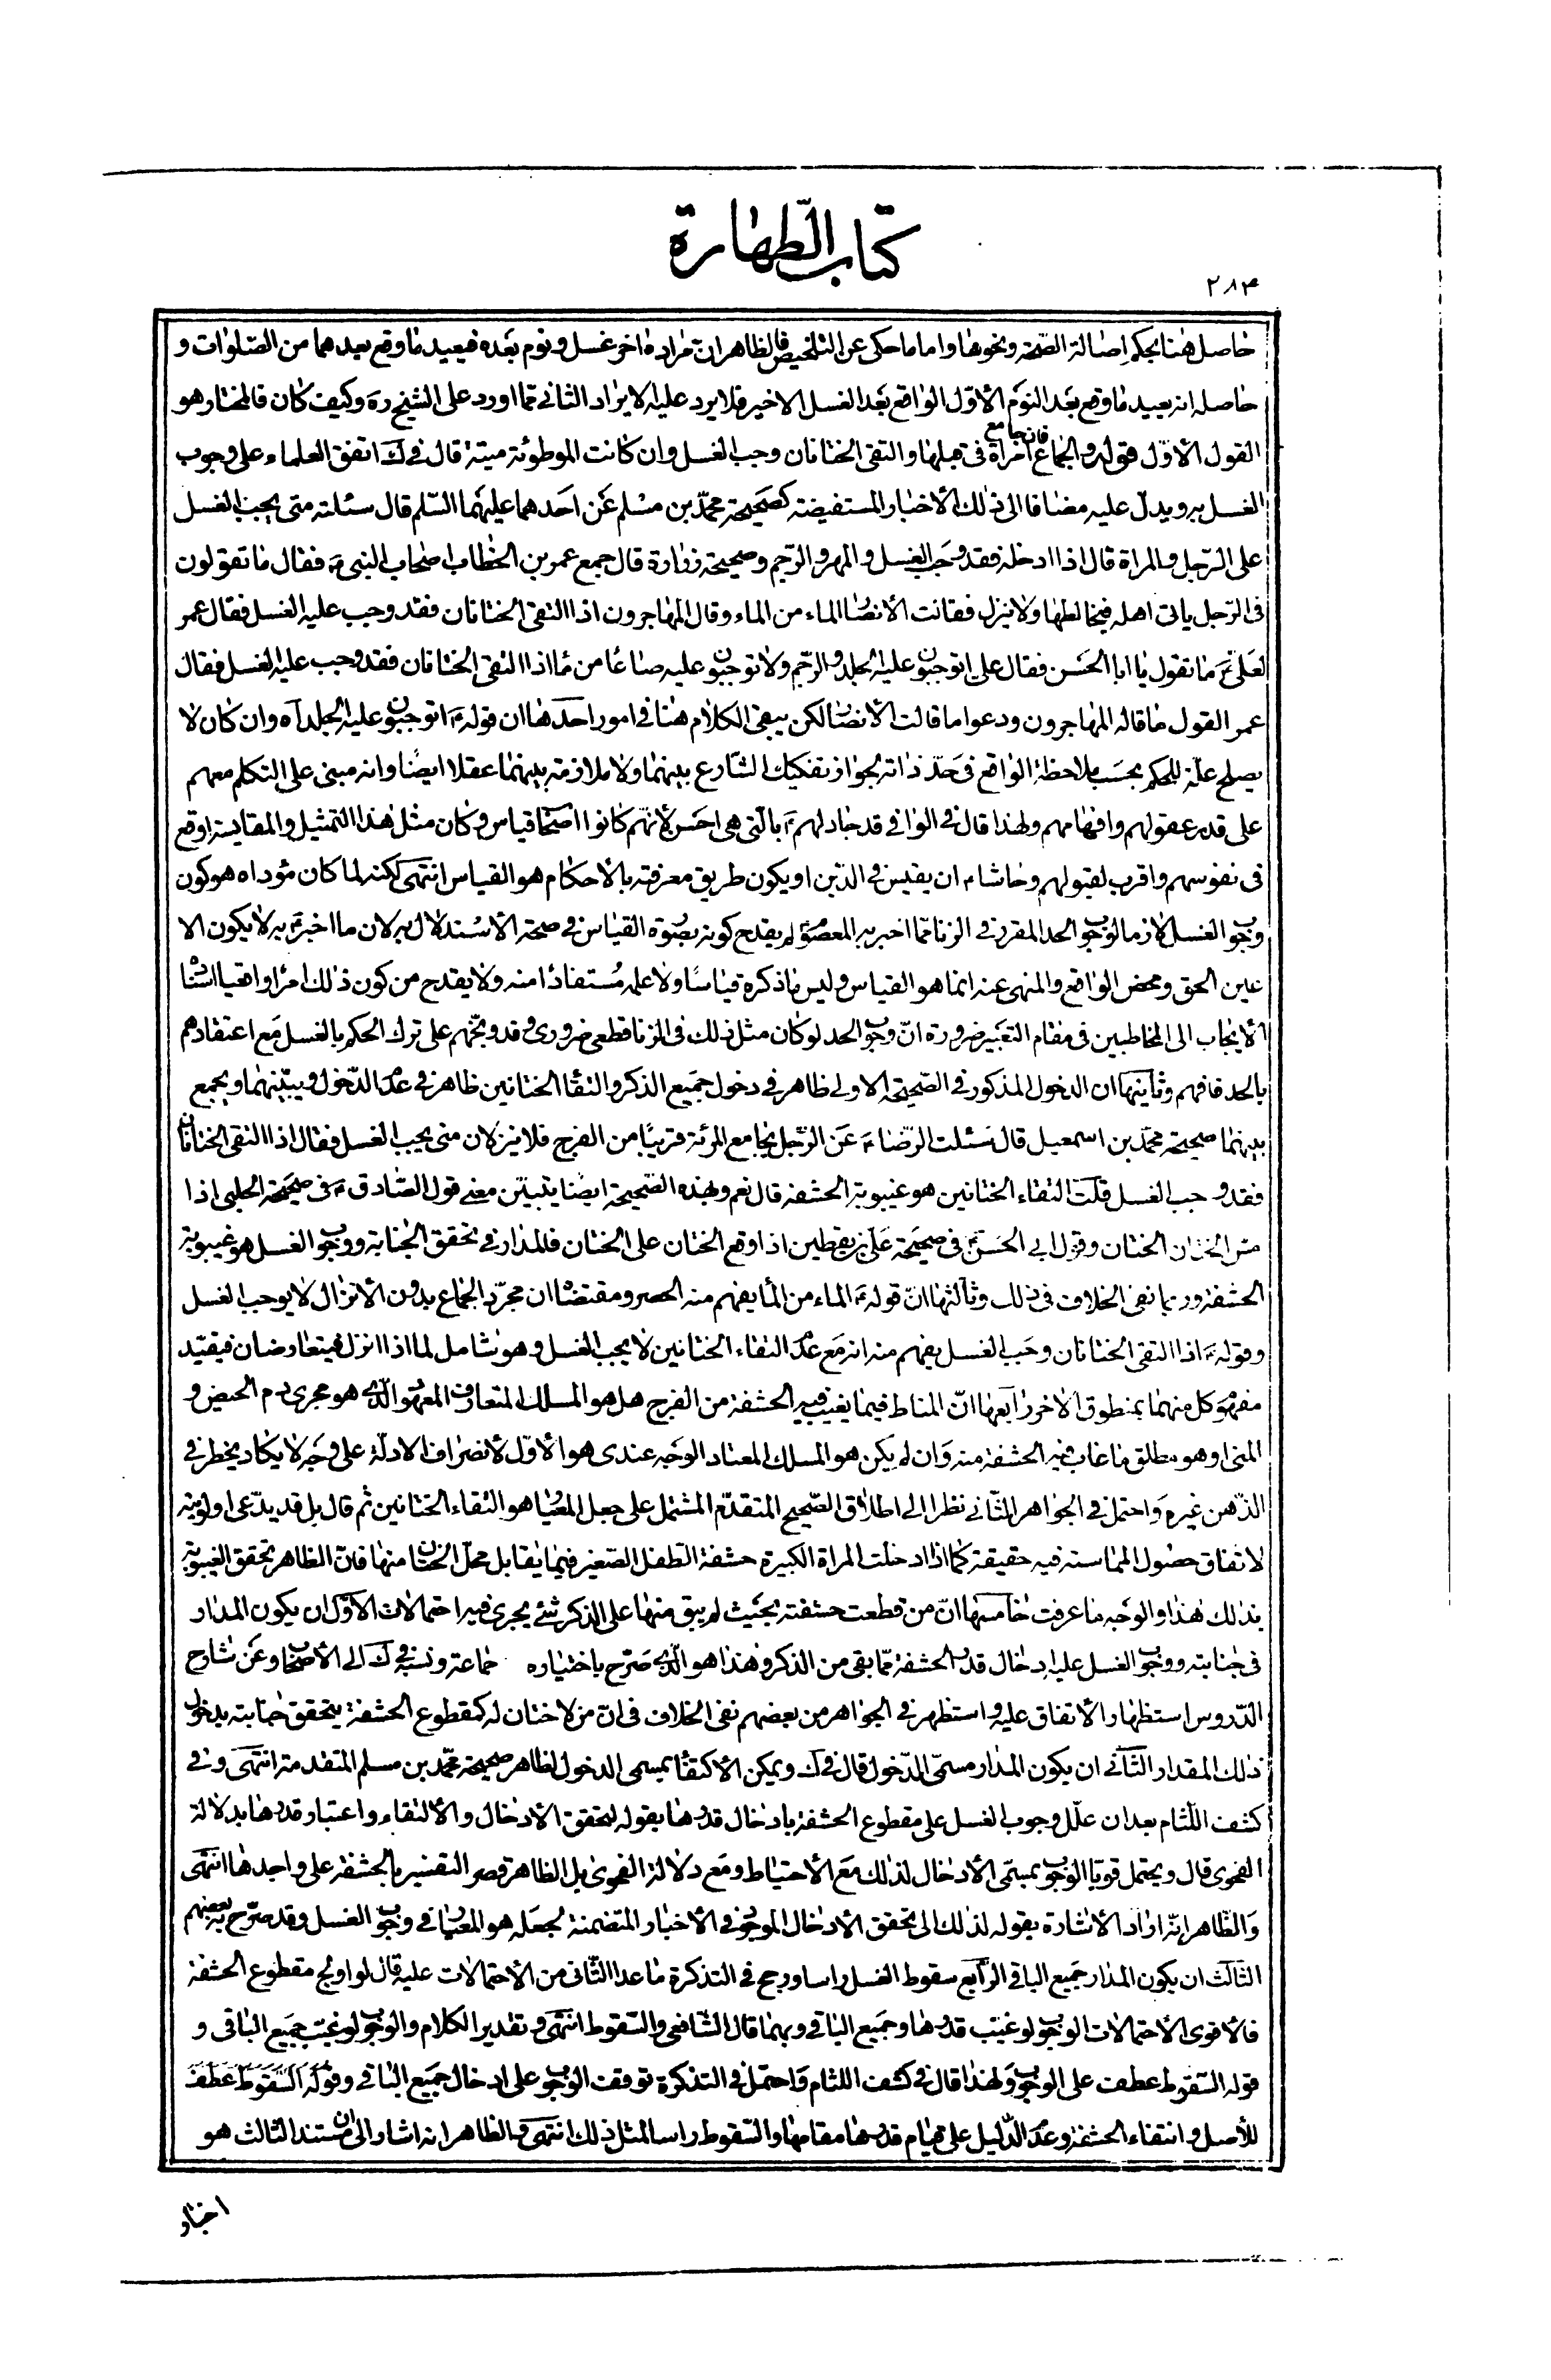 كتاب الطهارة
٢٨٤
حاصل هنا بحكم اصالة الصحة ونحوها واما ما حكى عن التلخيص فالظاهر ان مراده اخر غسل ونوم بعده فيعيد ما وقع بعدهما من الصلوات و
حاصله انه يعيد ما وقع بعد النوم الأول الواقع بعد الغسل الاخير فلا يرد عليه الايراد الثاني مما اورد على الشيخ ره وكيف كان فالمختار هو
القول الأول قوله والجماع فان جامع امراة في قبلها والتقى الختانان وجب الغسل وان كانت الموطوئة ميتة قال في ك اتفق العلماء على وجوب
الغسل به ويدل عليه مضافا الى ذلك الأخبار المستفيضة كصحيحة محمد بن مسلم عن احدهما عليهما السلم قال سئلته متى يجب الغسل
على الرجل والمراة قال اذا ادخله فقد وجب الغسل والمهر والرجم وصحيحة زرارة قال جمع عمر بن الخطاب اصحاب النبي ص فقال ما تقولون
في الرجل ياتي اهله فيخالطها ولا ينزل فقالت الأنصار الماء من الماء وقال المهاجرون اذا التقى الختانان فقد وجب عليه الغسل فقال عمر
لعلي ع ما تقول يا ابا الحسن فقال علي ع اتوجبون عليه الجلد والرجم ولا توجبون عليه صاعا من ماء اذا التقى الختانان فقد وجب عليه الغسل فقال
عمر القول ما قاله المهاجرون ودعوا ما قالت الأنصار لكن يبقى الكلام هنا في امور احدها ان قوله ع اتوجبون عليه الجلد آه وان كان لا
يصلح علة للحكم بحسب ملاحظة الواقع في حد ذاته لجواز تفكيك الشارع بينهما ولا ملازمة بينهما عقلا ايضا وانه مبني على التكلم معهم
على قدر عقولهم وافهامهم ولهذا قال في الوافي قد جادلهم ع بالتي هي احسن لأنهم كانوا اصحاب قياس وكان مثل هذا التمثيل والمقايسة اوقع
في نفوسهم واقرب لقبولهم وحاشاه ان يقيس في الدين او يكون طريق معرفته بالأحكام هو القياس انتهى لكنه لما كان مؤداه هو كون
وجوب الغسل لازما لوجوب الحد المقرر في الزنا مما اخبر به المعصوم لم يقدح كونه بصورة القياس في صحة الأستدلال به لان ما اخبر ع به لا يكون الا
عين الحق ومحض الواقع والمنهي عنه انما هو القياس وليس ما ذكره قياسا ولا علمه مستفادا منه ولا يقدح من كون ذلك امرا واقعيا اسناد
الأيجاب الى المخاطبين في مقام التعبير ضرورة ان وجوب الحد لو كان مثل ذلك في الزنا قطعي ضروري وقد وبخهم على ترك الحكم بالغسل مع اعتقادهم
بالحد فافهم وثانيها ان الدخول المذكور في الصحيحة الاولى ظاهر في دخول جميع الذكر والتقاء الختانين ظاهر في عدم الدخول ويبينهما ويجمع
بينهما صحيحة محمد بن اسمعيل قال سئلت الرضاء ع عن الرجل يجامع المرئة قريبا من الفرج فلا ينزلان متى يجب الغسل فقال اذا التقى الختانان
فقد وجب الغسل قلت التقاء الختانين هو غيبوبة الحشفة قال نعم وبهذه الصحيحة ايضا يتبين معنى قول الصادق ع في صحيحة الحلبي اذا
مس الختان الختان وقول ابي الحسن ع في صحيحة علي بن يقطين اذا وقع الختان على الختان فالمدار في تحقق الجنابة ووجوب الغسل هو غيبوبة
الحشفة وربما نفي الخلاف في ذلك وثالثها ان قوله ع الماء من الماء يفهم منه الحصر ومقتضاه ان مجرد الجماع بدون الأنزال لا يوجب الغسل
وقوله ع اذا التقى الختانان وجب الغسل يفهم منه انه مع عدم التقاء الختانين لا يجب الغسل وهو شامل لما اذا انزل فيتعارضان فيقيد
مفهوم كل منهما بمنطوق الاخر رابعها ان المناط فيما يغيب فيه الحشفة من الفرج هل هو المسلك المتعارف المعهود الذي هو مجرى دم الحيض و
المني او هو مطلق ما غاب فيه الحشفة منه وان لم يكن هو المسلك المعتاد الوجه عندي هو الأول لأنصراف الادلة على وجه لا يكاد يخطر في
الذهن غيره واحتمل في الجواهر الثاني نظرا الى اطلاق الصحيح المتقدم المشتمل على جعل المعيار هو التقاء الختانين ثم قال بل قد يدعى اولويته
لاتفاق حصول المماسة فيه حقيقة كما اذا ادخلت المراة الكبيرة حشفة الطفل الصغير فيما يقابل محل الختان منها فان الظاهر تحقق الغيبوبة
بذلك هذا والوجه ما عرفت خامسها ان من قطعت حشفته بحيث لم يبق منها على الذكر شئ يجري فيه احتمالات الأول ان يكون المدار
في جنابته ووجوب الغسل عليه ادخال قدر الحشفة مما بقي من الذكر وهذا هو الذي صرح باختياره جماعة ونسبه في ك الى الأصحاب وعن شارح
الدروس استظهار الأتفاق عليه واستظهر في الجواهر من بعضهم نفي الخلاف في ان من لا ختان له كمقطوع الحشفة يتحقق جنابته بدخول
ذلك المقدار الثاني ان يكون المدار مسمى الدخول قال في ك ويمكن الأكتفاء بمسمى الدخول لظاهر صحيحة محمد بن مسلم المتقدمة انتهى وفي
كشف اللثام بعد ان علل وجوب الغسل على مقطوع الحشفة بادخال قدرها بقوله لتحقق الأدخال والألتقاء واعتبار قدرها بدلالة
الفحوى قال ويحتمل قويا الوجوب بمسمى الأدخال لذلك مع الأحتياط ومع دلالة الفحوى بل الظاهر قصر التفسير بالحشفة على واجدها انتهى
والظاهر انه اراد الأشارة بقوله لذلك الى تحقق الأدخال الموجود في الأخبار المتضمنة لجعله هو المعيار في وجوب الغسل وقد صرح به بعضهم
الثالث ان يكون المدار جميع الباقي الرابع سقوط الغسل راسا ورجح في التذكرة ما عدا الثاني من الأحتمالات عليه قال لو اولج مقطوع الحشفة
فالأقوى الأحتمالات الوجوب لو غيب قدرها وجميع الباقي وبهما قال الشافعي والسقوط انتهى وتقدير الكلام والوجوب لو غيب جميع الباقي و
قوله السقوط عطف على الوجوب ولهذا قال في كشف اللثام واحتمل في التذكرة توقف الوجوب على ادخال جميع الباقي وقوله السقوط عطف
للأصل وانتفاء الحشفة وعدم الدليل على قيام قدرها مقامها والسقوط راسا لمثل ذلك انتهى والظاهر انه اشار الى ان مستند الثالث هو
اخبار